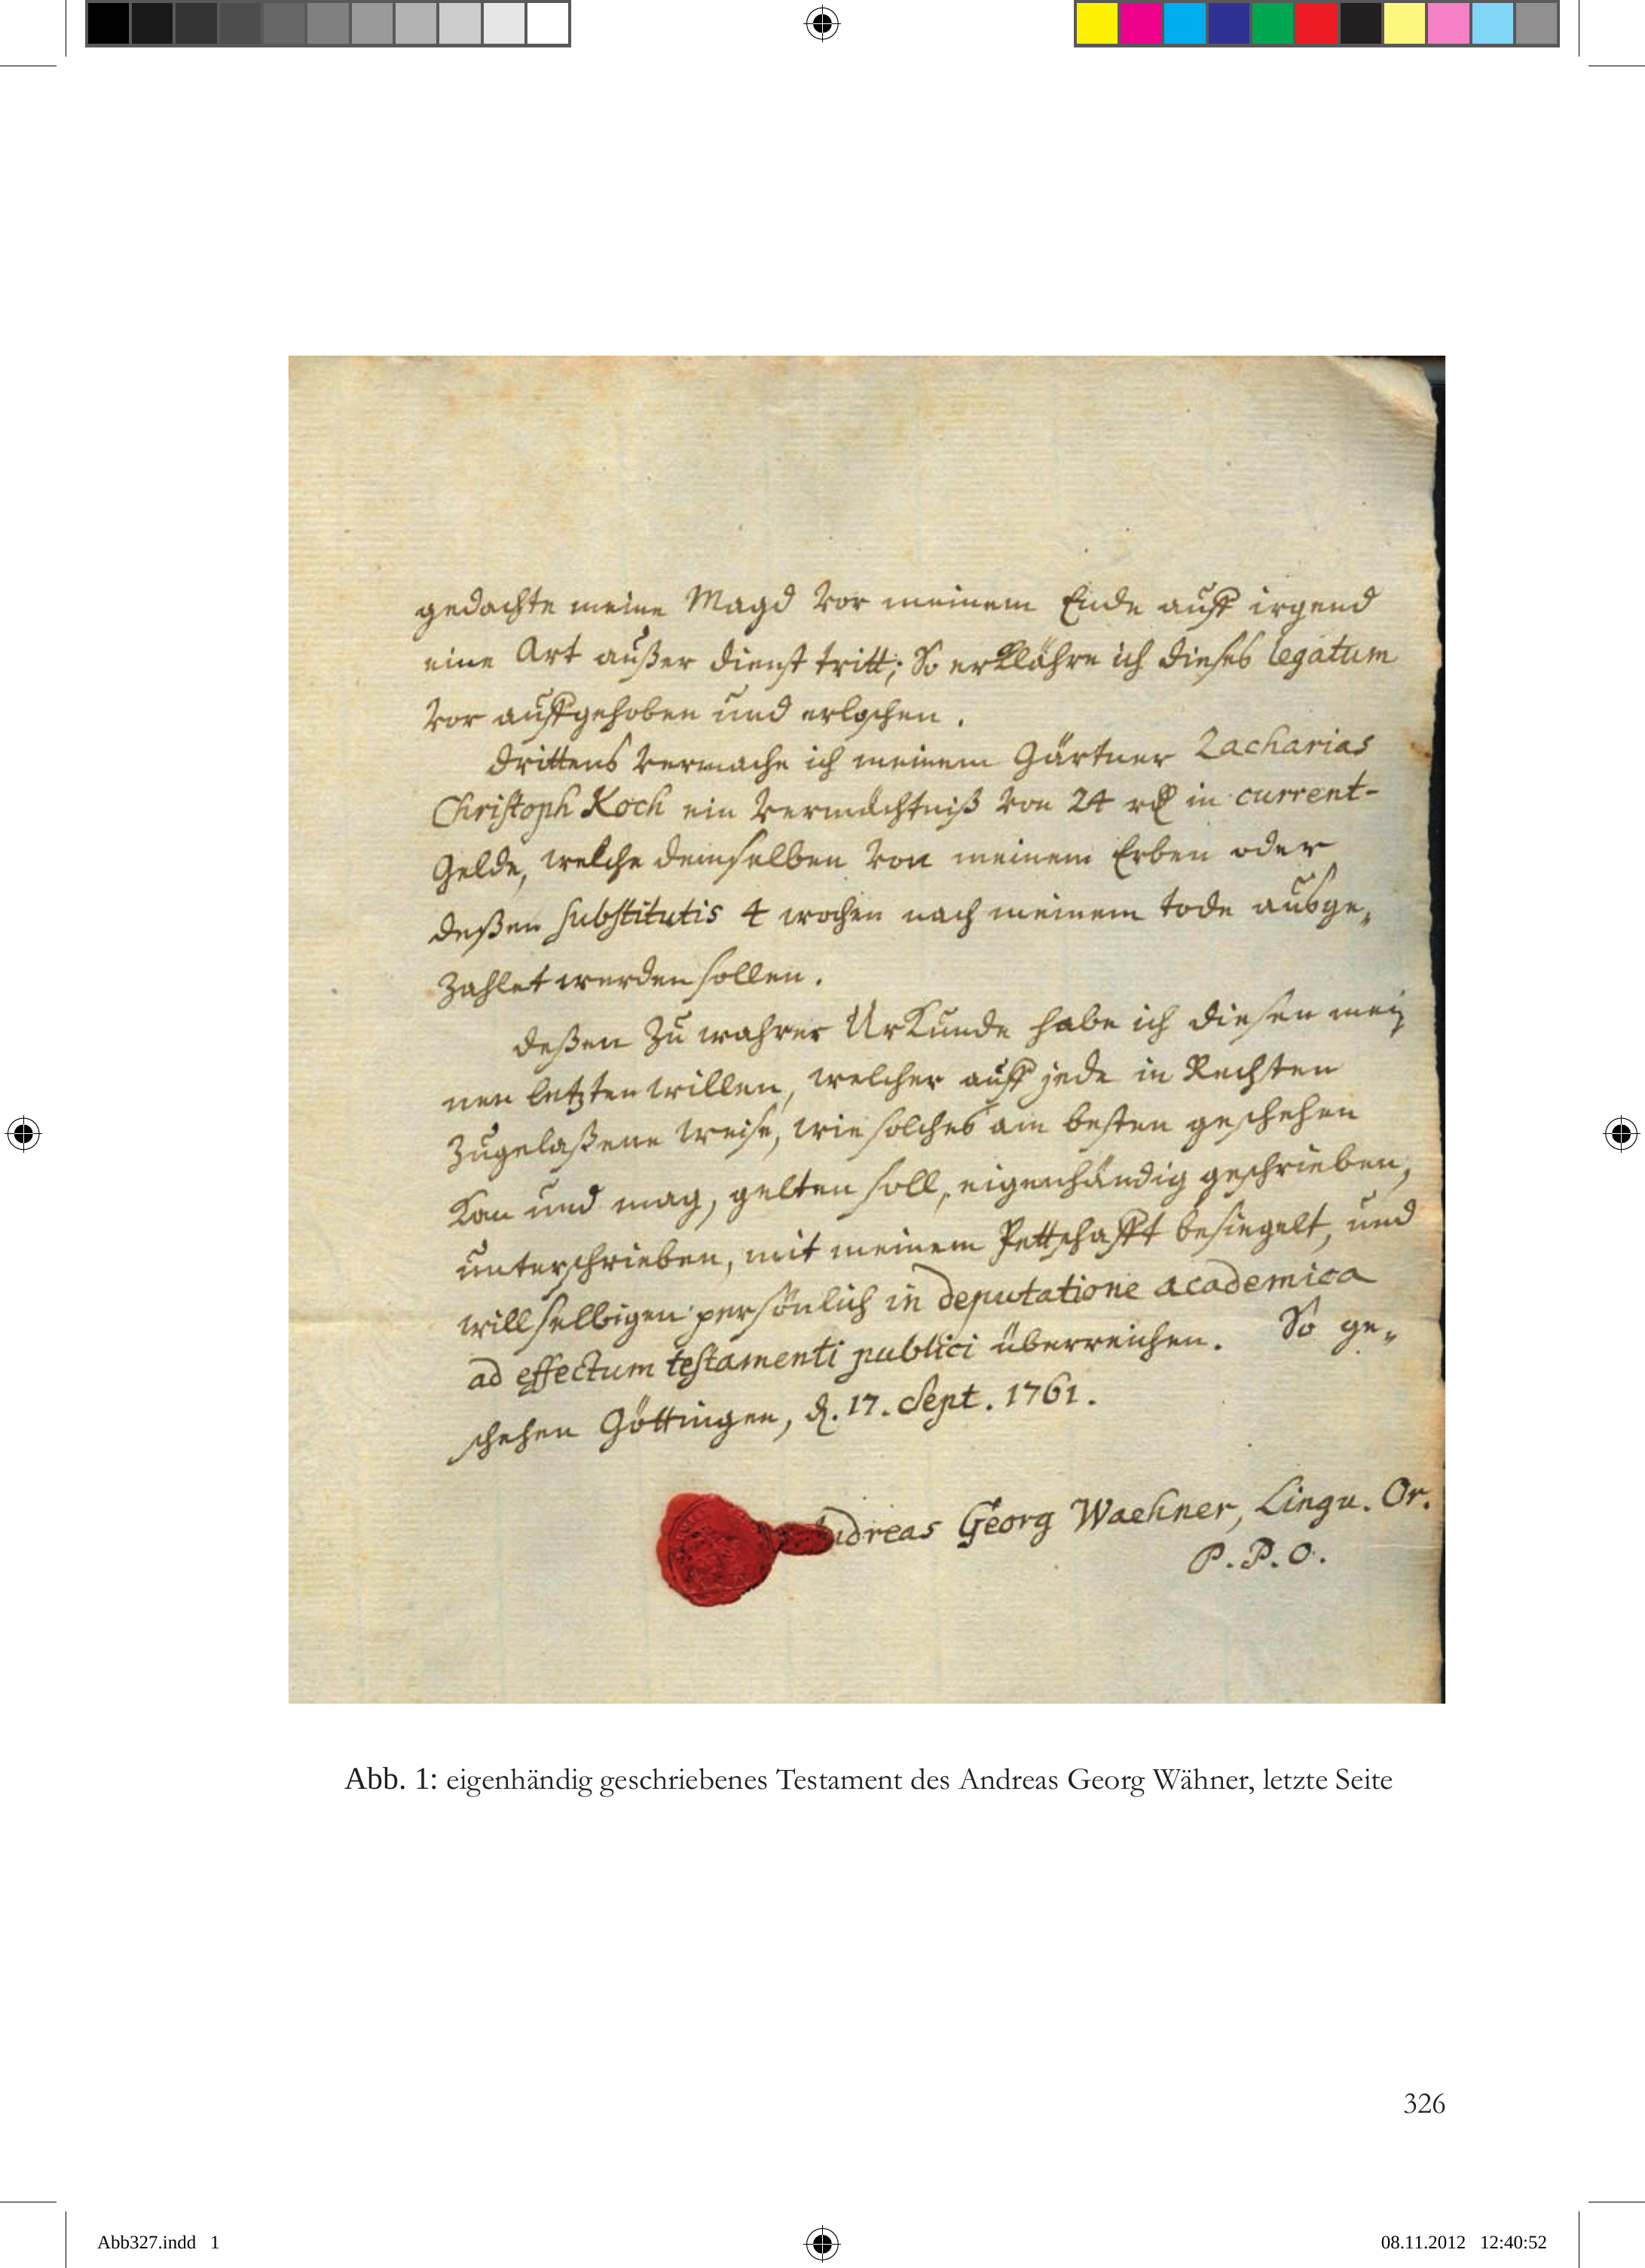 gedachte meine Magd vor meinem Ende auff irgend
eine Art außer dienst tritt; So erklähre ich dieses legatum
vor auffgehoben und erloschen.
drittens vermache ich meinem Gärtner Zacharias
Christoph Koch ein vermächtniß von 24 rthl in current-
Gelde, welche demselben von meinem Erben oder
deßen substitutis 4 wochen nach meinem tode ausge„
zahlet werden sollen.
deßen zu wahrer Urkunde habe ich diesen mei„
nen letzten willen, welcher auff jede in Rechten
zugelaßene weise, wie solches am besten geschehen
kan und mag, gelten soll, eigenhändig geschrieben,
unterschrieben, mit meinem Pettschafft besiegelt, und
will selbigen persönlich in deputatione academica
ad effectum testamenti publici überreichen. So ge„
schehen Göttingen, d. 17. Sept. 1761.
Andreas Georg Waehner, Lingu. Or.
P. P. O.
Abb. 1: eigenhändig geschriebenes Testament des Andreas Georg Wähner, letzte Seite
326
Abb327.indd 1 08.11.2012 12:40:52